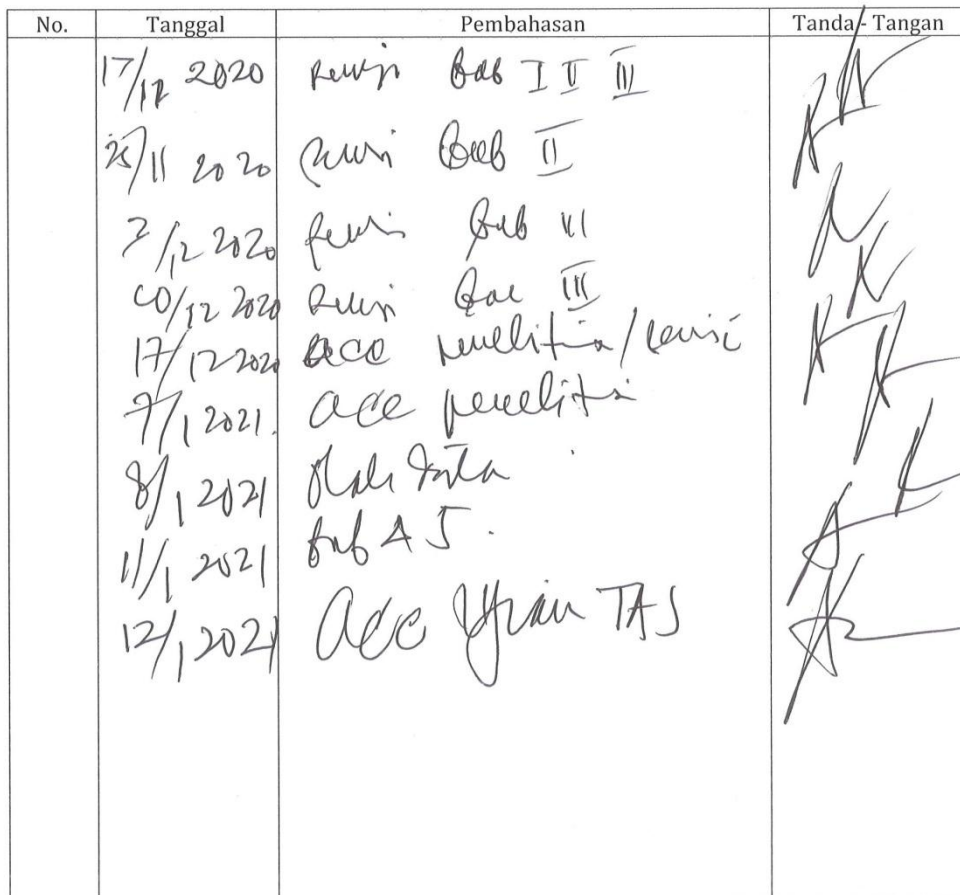 No. Tanggal Pembahasan Tanda - Tangan
17/12 2020 Revisi Bab I II III
25/11 2020 Revisi Bab II
2020 Revisi Bab
10/12 2020 Revisi Bab III
17/12 2020 acc penelitia/revisi
7/1 2021. acc penelitia
8/1 2021 Olah data
11/1 2021 Bab 4 5.
12/1 2021 acc Ujian TAS